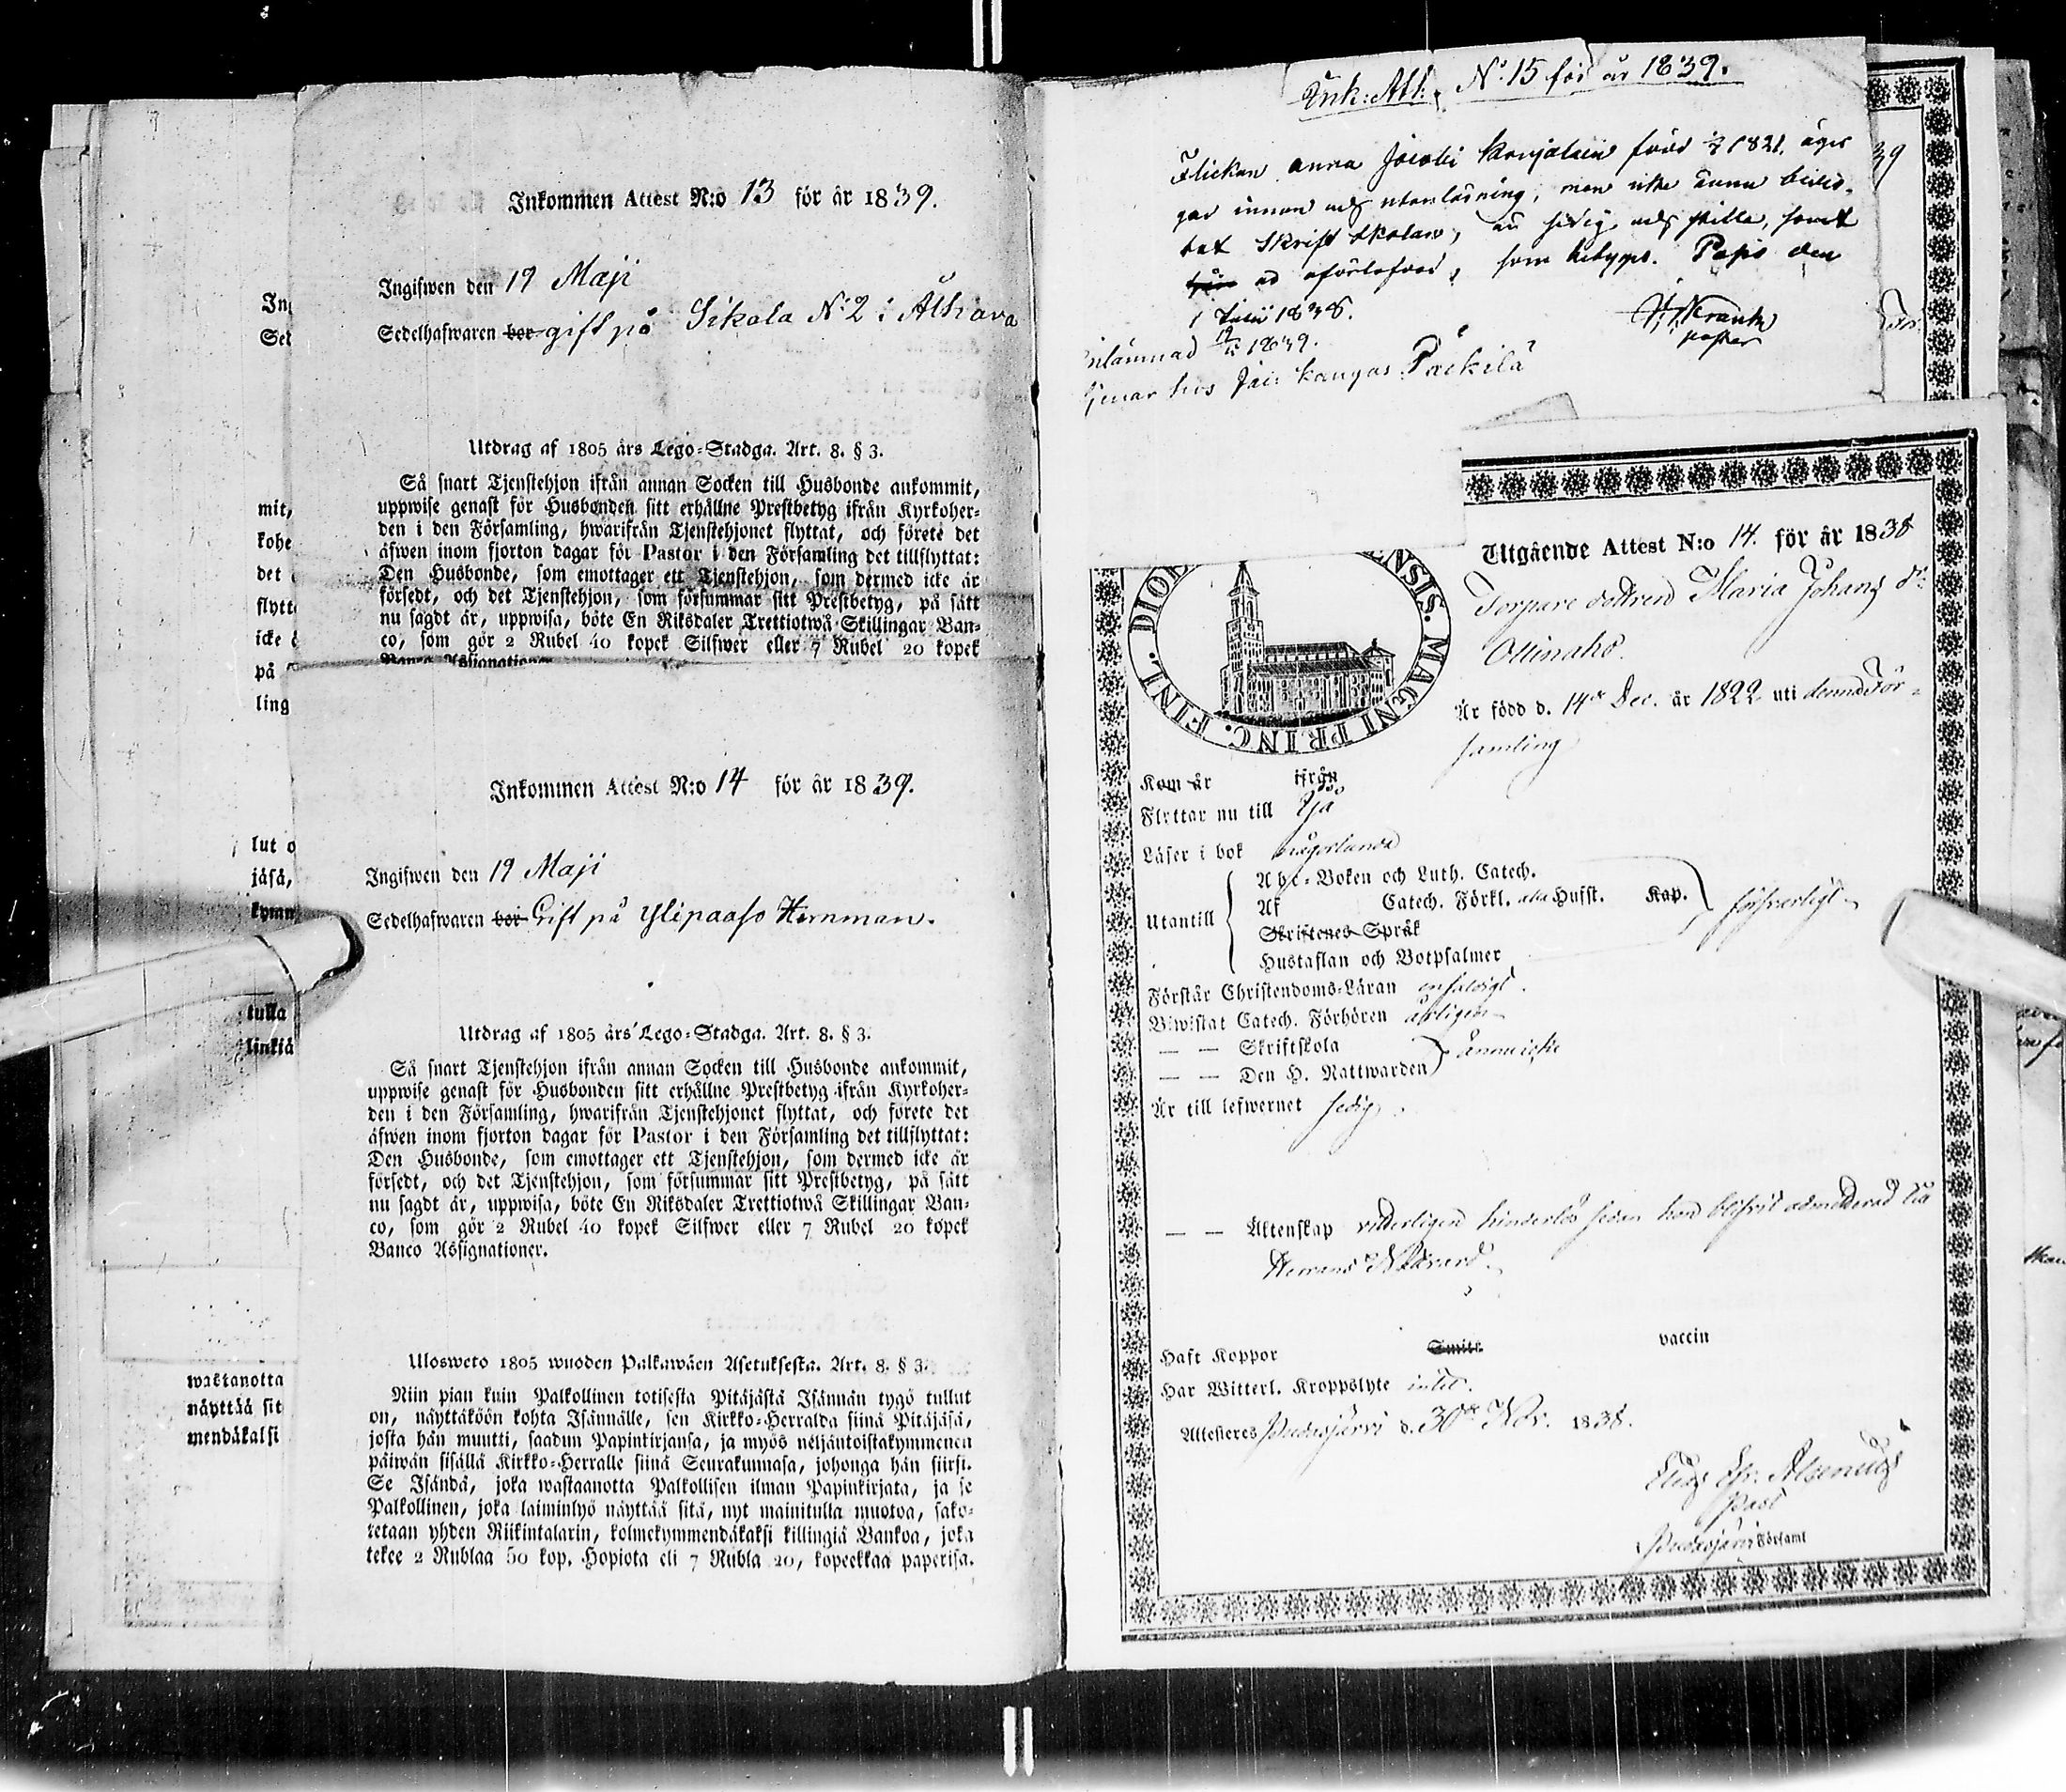 Inkommen Attest N:o 13 för år 1839.
Ingifwen den 19 Maji
Sedelhafwaren bor gift på Sikala N:2 i Alhava
Utdrag af 1805 års Lego-Stadga. Art. 8. § 3.
Så snart Tjenstehjon ifrån annan Socken till Husbonde ankommit,
uppwise genast för Husbonden sitt erhållne Prestbetyg ifrån Kyrkoher-
den i den Församling, hwarifrån Tjenstehjonet flyttat, och förete det
äfwen inom fjorton dagar för Pastor i den Församling det tillflyttat:
Den Husbonde, som emottager ett Tjenstehjon, som dermed icke är
försedt, och det Tjenstehjon, som försummar sitt Prestbetyg, på sätt
nu sagdt är, uppwisa, böte En Riksdaler Trettiotwå Skillingar Ban-
co, som gör 2 Rubel 40 kopek Silfwer eller 7 Rubel 20 kopek
Banco Assignationer.
Inkommen Attest N:o 14 för år 1839.
Ingifwen den 19 Maji
Sedelhafwaren bor Gift på Ylipaaso Hernman.
Utdrag af 1805 års Lego-Stadga. Art. 8. § 3.
Så snart Tjenstehjon ifrån annan Socken till Husbonde ankommit,
uppwise genast för Husbonden sitt erhållne Prestbetyg ifrån Kyrkoher-
den i den Församling, hwarifrån Tjenstehjonet flyttat, och förete det
äfwen inom fjorton dagar för Pastor i den Församling det tillflyttat:
Den Husbonde, som emottager ett Tjenstehjon, som dermed icke är
försedt, och det Tjenstehjon, som försummar sitt Prestbetyg, på sätt
nu sagdt är, uppwisa, böte En Riksdaler Trettiotwå Skillingar Ban-
co, som gör 2 Rubel 40 kopek Silfwer eller 7 Rubel 20 kopek
Banco Assignationer.
Ulosweto 1805 wuoden Palkawäen Asetuksesta. Art. 8. § 3.
Niin pian kuin Palkollinen totisesta Pitäjästä Isännän tygö tullut
on, näyttäköön kohta Isännälle, sen Kirkko-Herralda siinä Pitäjäsä,
josta hän muutti, saadun Papinkirjansa, ja myös neljäntoistakymmenen
päiwän sisällä Kirkko-Herralle siinä Seurakunnasa, johonga hän siirsi.
Se Isändä, joka wastaanotta Palkollisen ilman Papinkirjata, ja se
Palkollinen, joka laiminlyö näyttää sitä, nyt mainitulla muotoa, sako-
tetaan yhden Riikintalarin, kolmekymmendäkaksi killingiä Bankoa, joka
tekee 2 Rublaa 50 kop. Hopiota eli 7 Rubla 20, kopeekkaa paperisa.
mit,
kohe
det
flytt
icke
på
ling
lut o
jäsä,
kymn
tulla
linkiä
wastanotta
näyttää sit
mendäkalsi
Ink: Att: N:15 för år 1839.
Flickan Anna Jacobi Karjalain född 1821, äger
innan och utanläsning, men icke ännu bevis-
tat Skriftskolan, är sedig och stilla, samt
oförlofvad, som betygas. Pajis den
1 Junii 1838.
Frank
pastor
Inlämnad 1839.
Tjenar hos Kangas Päckilä
DIOE ENSIS. MAGNI PRINC. FINL.
Utgående Attest N:o 14. för år 1838
Torpare dottren Maria Johans d:r
Ollinaho.
Är född d. 14de Dec. år 1822 uti denna För-
samling
Kom år ifrån
Flyttar nu till Ijå
Läser i bok någorlunda
Utantill
Abc-Boken och Luth. Catech.
Af Catech. Förkl. alla Hufst. Kap.
Skriftenes Språk
Hustaflan och Botpsalmer
försvarligt
Förstår Christendoms-Läran enfaldigt.
Biwistat Catech. Förhören årligen
— — Skriftskola
— — Den H. Nattwarden
ännu icke
Är till lefwernet sedig
— — Äktenskap vitterligen hinderlös sedan hon blifvit admitterad till
Herrans Nattvard.
Haft Koppor Smitt vaccin
Har Witterl. Kroppslyte intet.
Attesteras Pudasjärvi d. 30de Nov. 1838.
Past
Pudasjärvi Församl